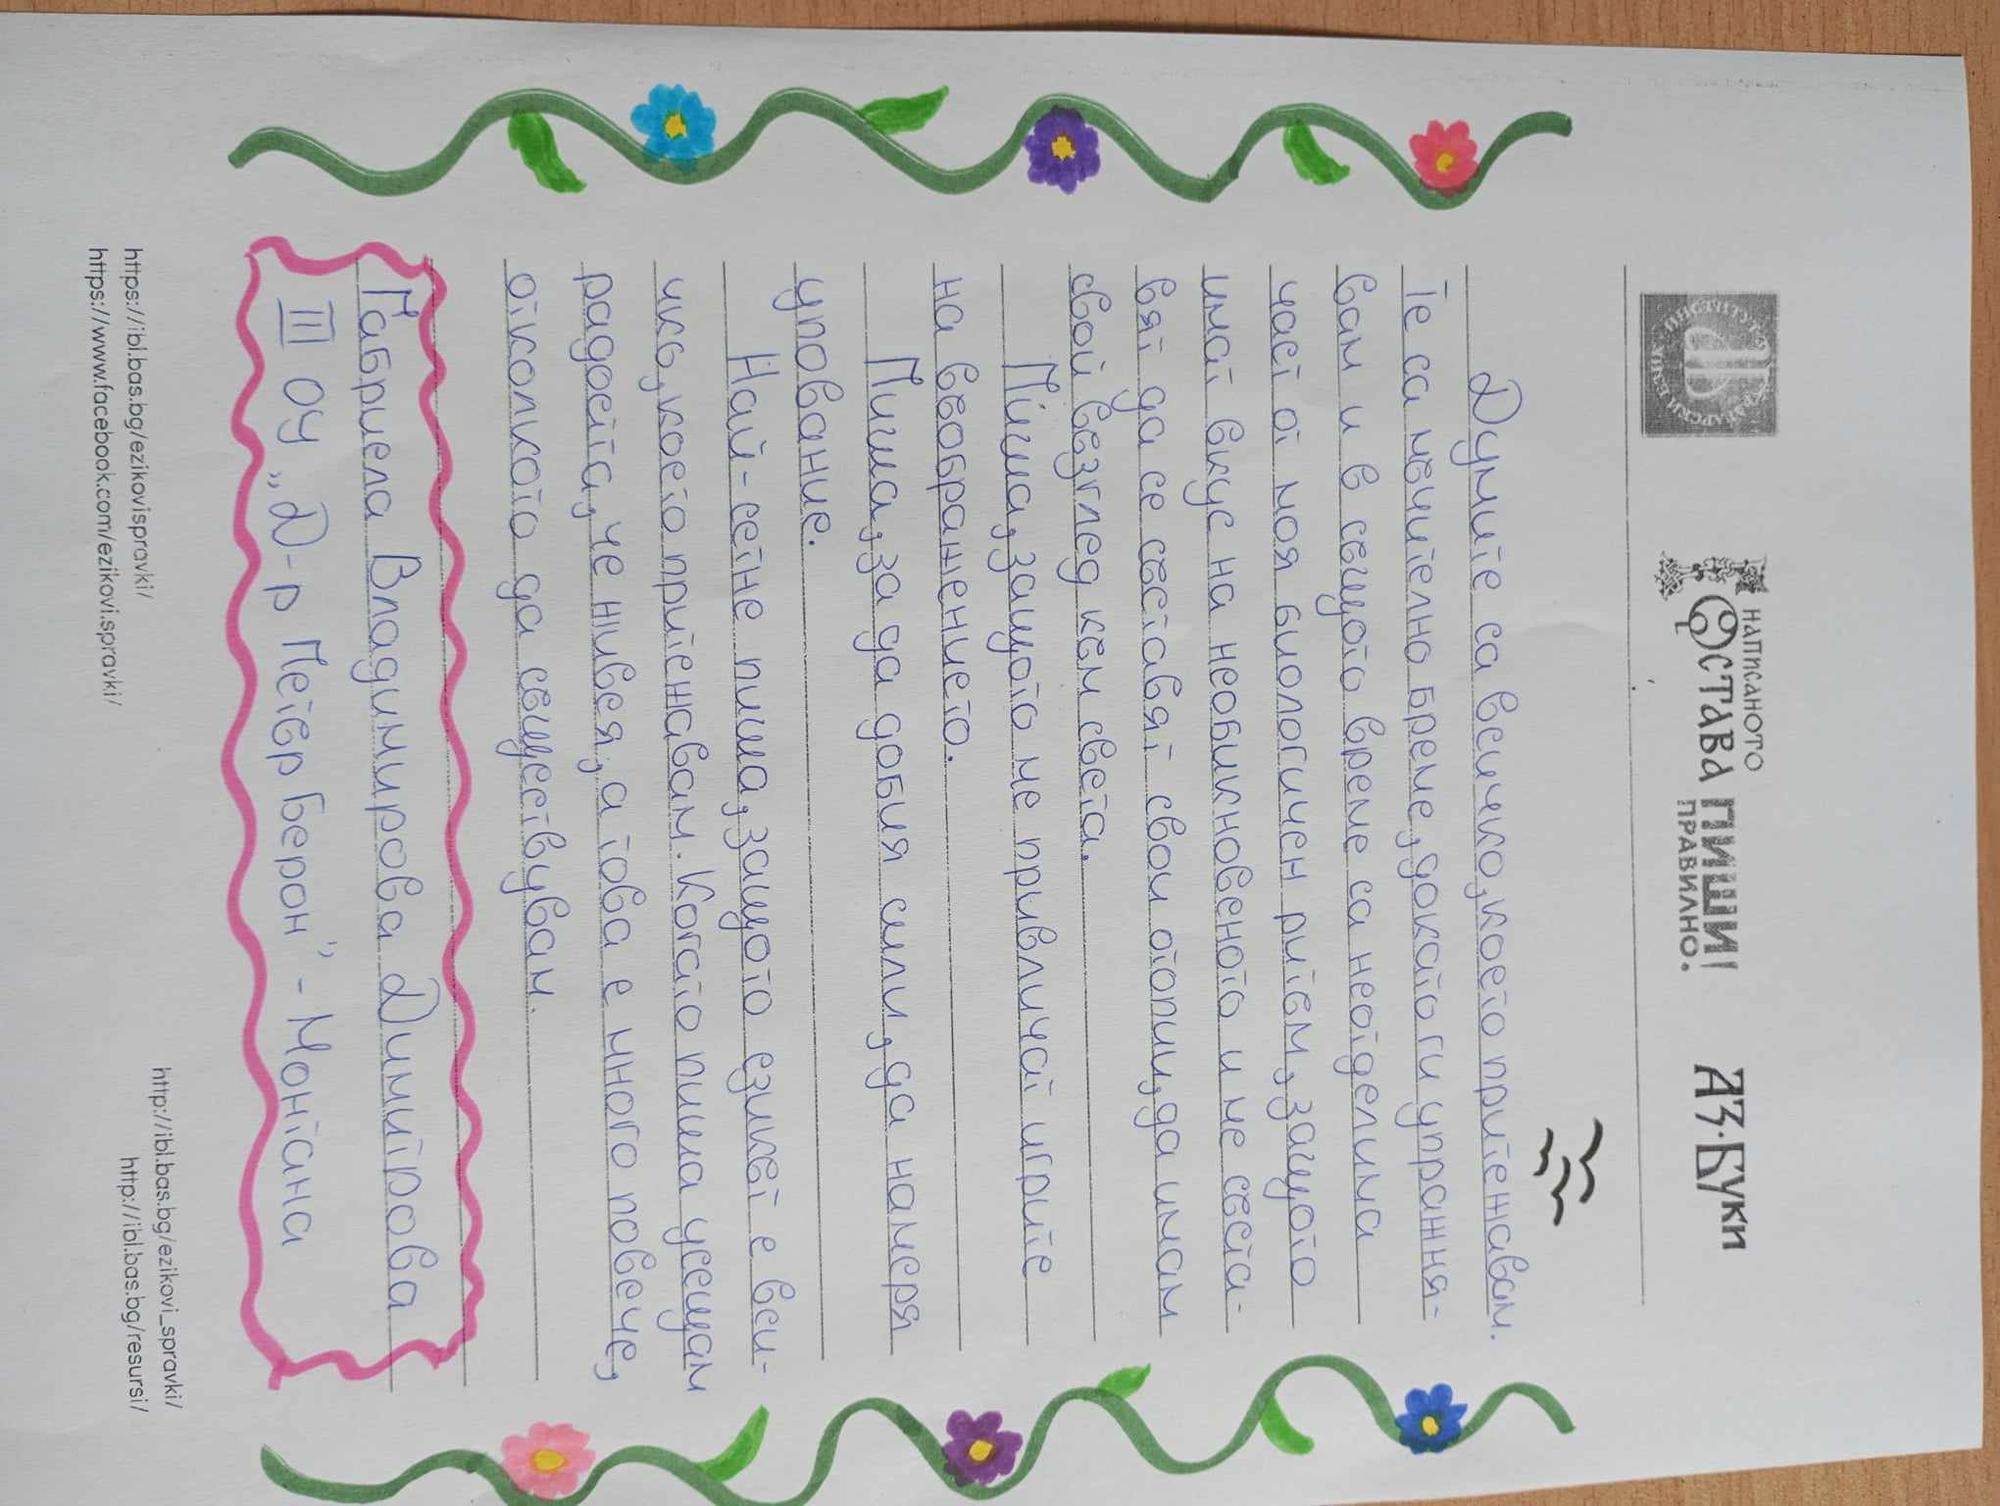 НАПИСАНОТО
ОСТАВА ПИШИ!
ПРАВИЛНО.
АЗ·БУКИ
Думите са всичко, което притежавам.
Те са мъчително бреме, докато ги упражня-
вам и в същото време са неотделима
част от моя биологичен ритъм, защото
имат вкус на необикновеното и ме съста-
вят да се съставят свои стопи, да имам
свой възглед към света.
Пиша, защото ме привличат игрите
на въображението.
Пиша, за да добия сили, да намеря
упование.
Най-сетне пиша, защото езикът е вси-
чко, което притежавам. Когато пиша усещам
радостта, че живея, а това е много повече,
отколкото да съществувам.
Габриела Владимирова Димитрова
III ОУ „Д-р Петър Берон" - Монтана
https://ibl.bas.bg/ezikovispravki/
https://www.facebook.com/ezikovi.spravki/
http://ibl.bas.bg/ezikovi_spravki/
http://ibl.bas.bg/resursi/